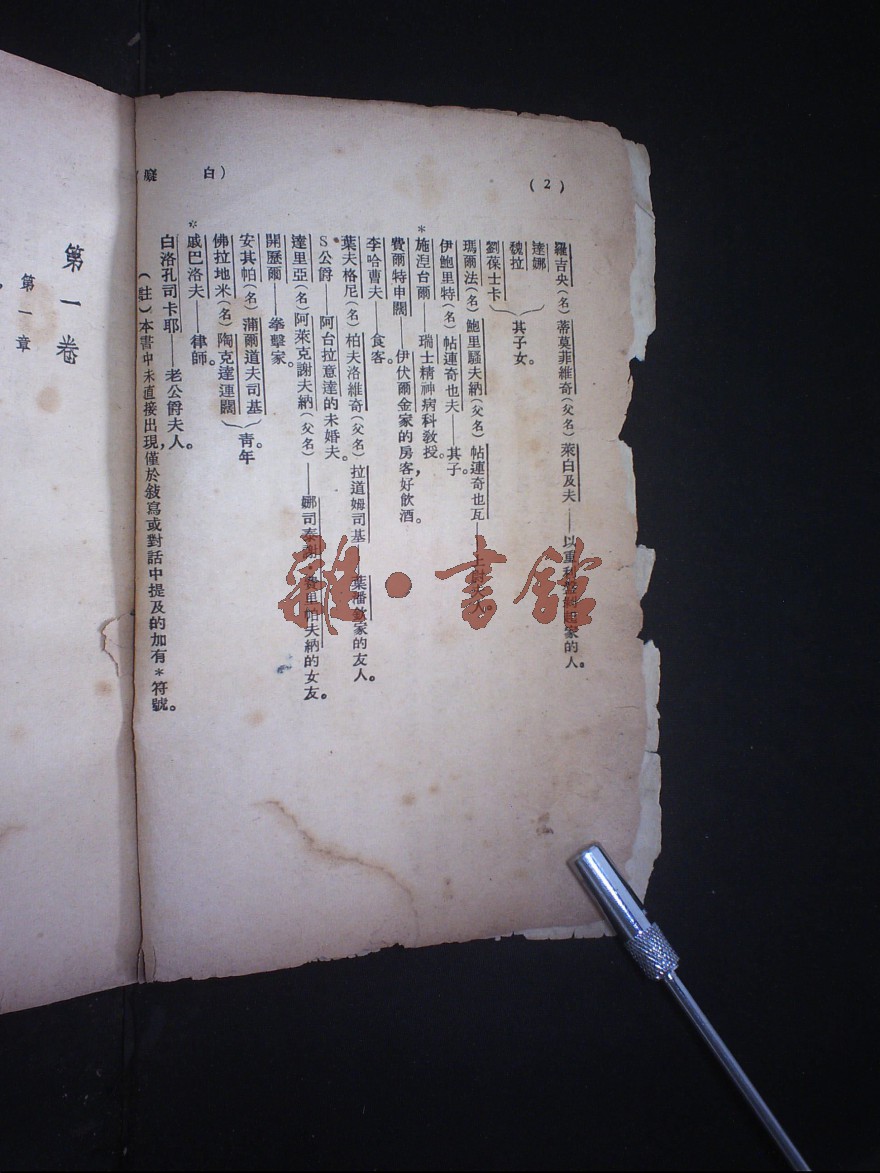 (2)
白癡
羅吉央(名)蒂莫菲維奇(父名)萊白及夫——以重利盤剝起家的人。
達娜
魏拉
劉葆士卡
其子女。
瑪爾法(名)鮑里騷夫納(父名)帖連奇也瓦——上尉夫人。
伊鮑里特(名)帖連奇也夫——其子。
*施涅台爾——瑞士精神病科教授。
費爾特申闊——伊伏爾金家的房客,好飲酒。
李哈曹夫——食客。
葉夫格尼(名)柏夫洛維奇(父名)拉道姆司基——葉潘欽家的友人。
S公爵——阿台拉意達的未婚夫。
達里亞(名)阿萊克謝夫納(父名)——娜司泰謝·費里帕夫納的女友。
開歷爾——拳擊家。
安其帕(名)蒲爾道夫司基
佛拉地米(名)陶克達連闊
青年。
*戚巴洛夫——律師。
白洛孔司卡耶——老公爵夫人。
(註)本書中未直接出現,僅於敍寫或對話中提及的加有*符號。
第一卷
第一章
雜·書館